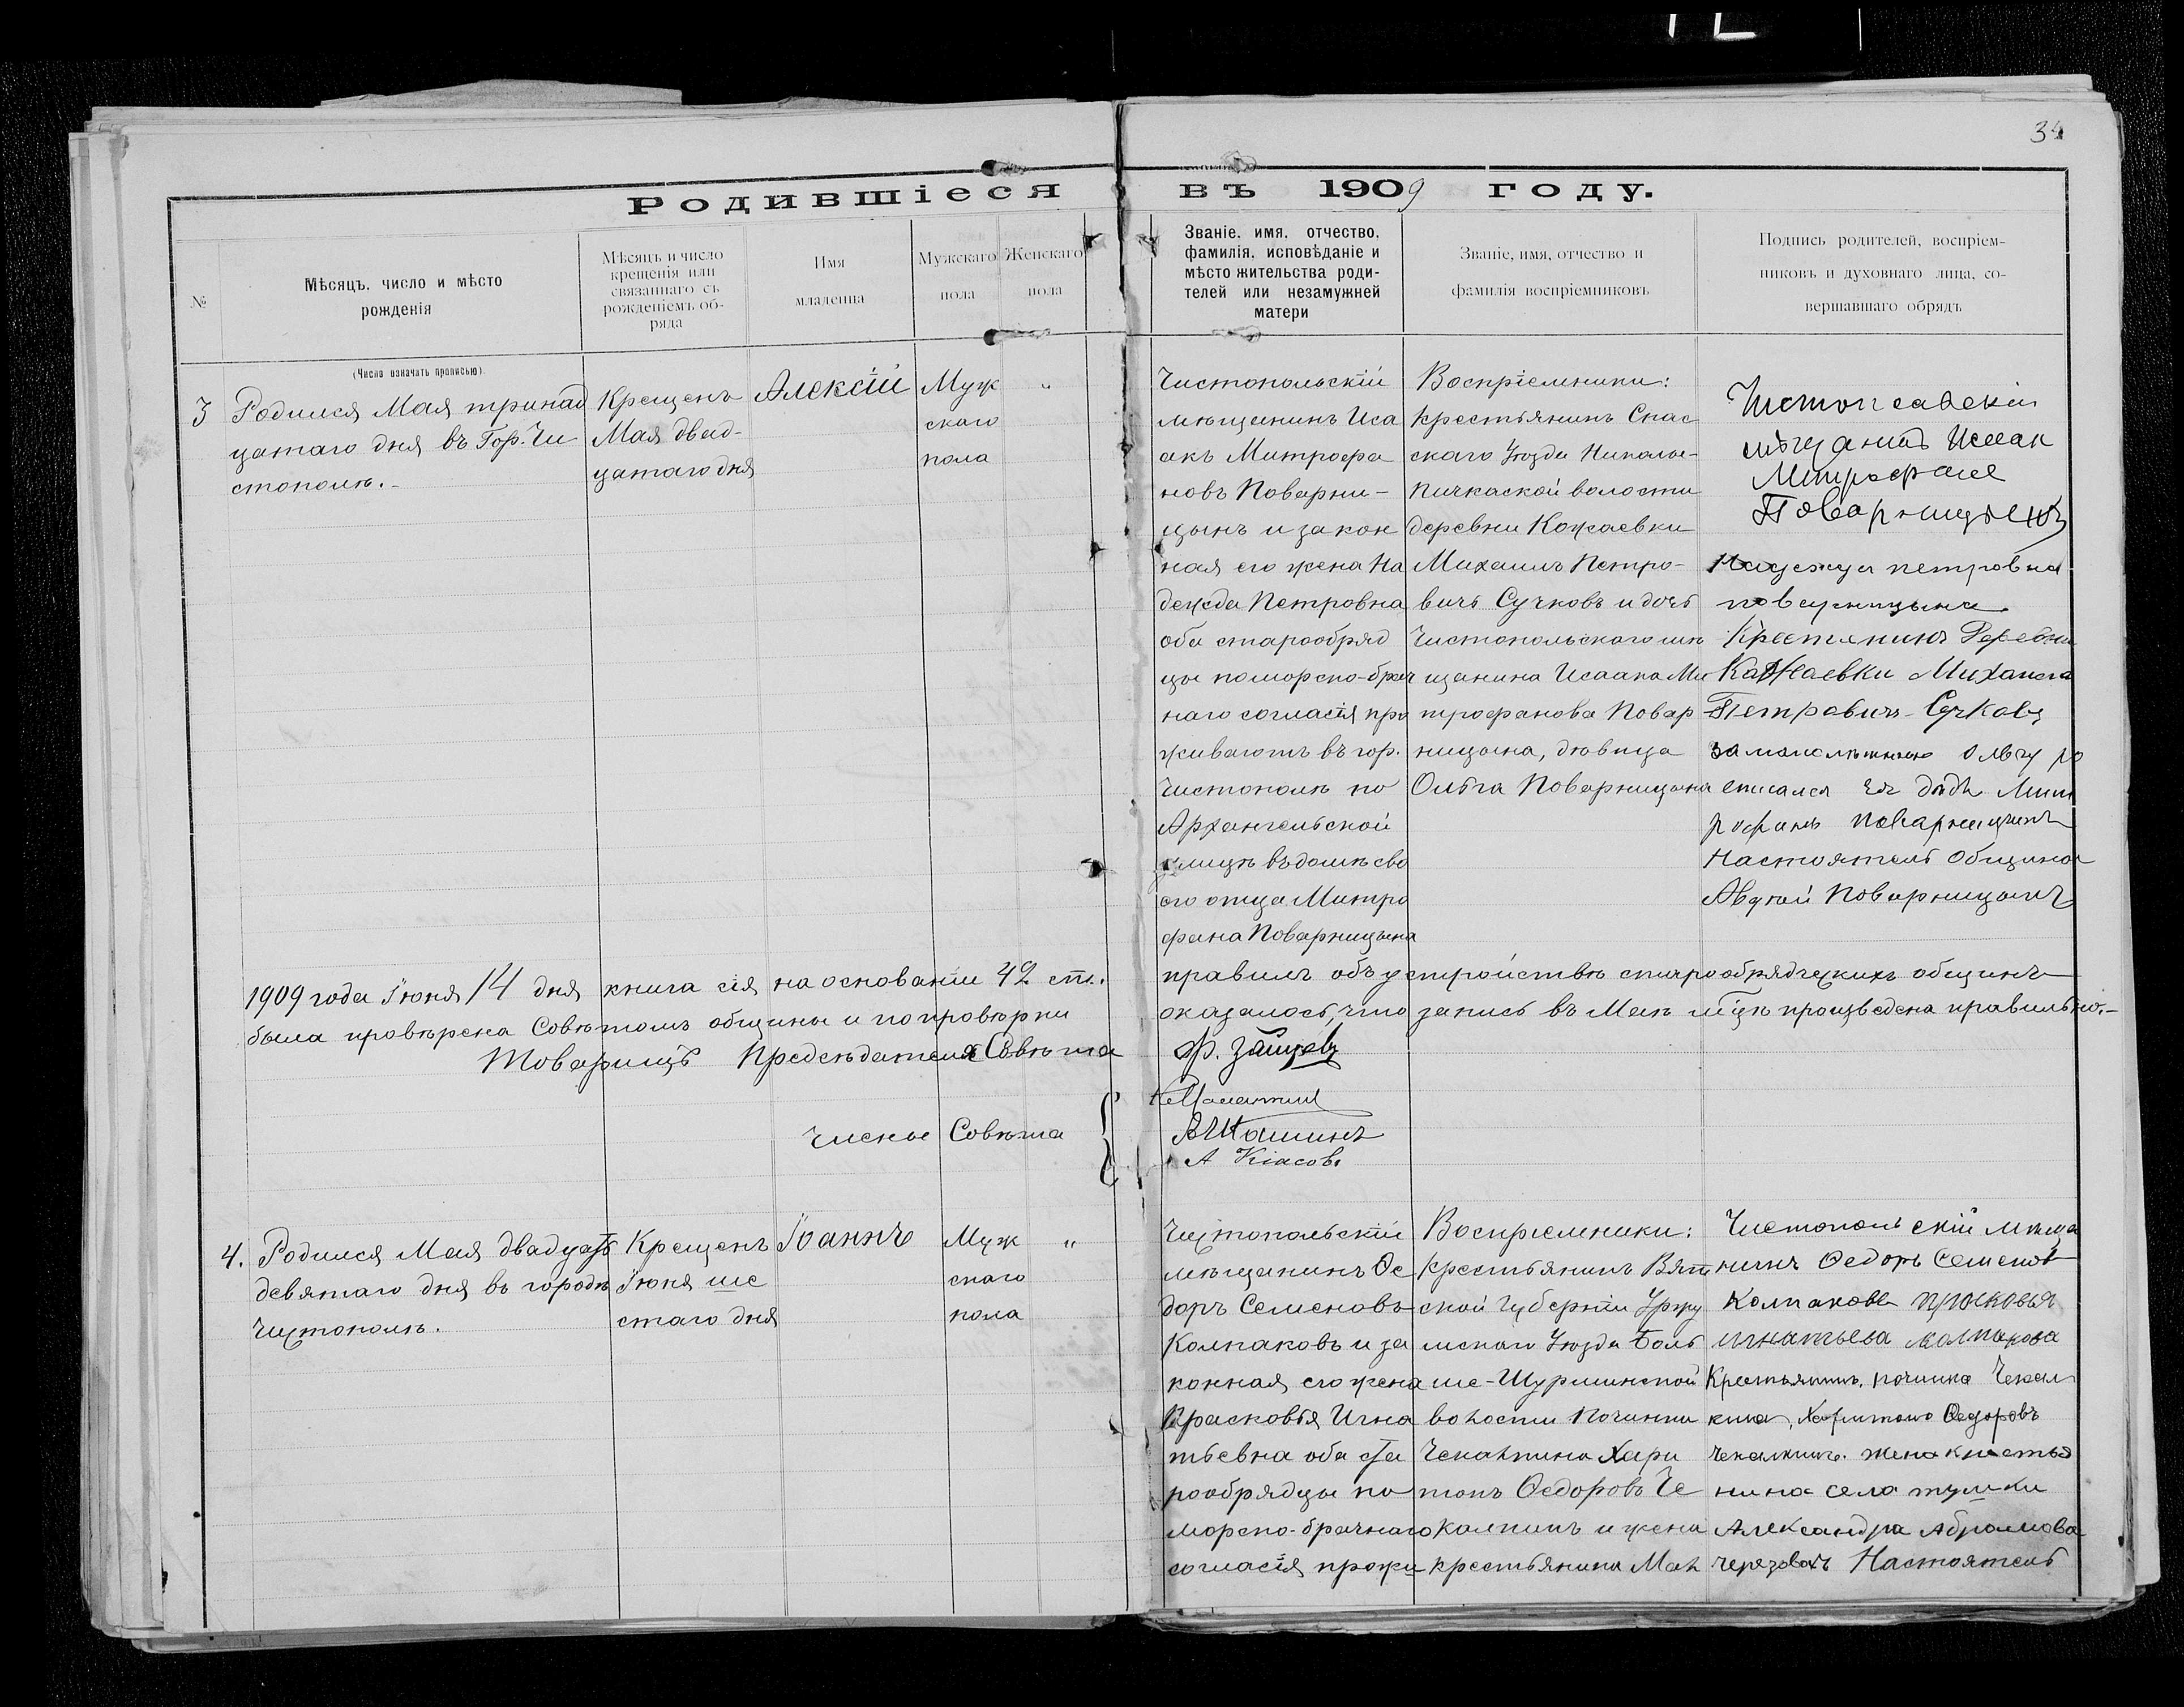 34
Родившіеся въ 1909 году.
№
Мѣсяцъ, число и мѣсто
рожденія
Мѣсяцъ и число
крещенія или
связаннаго съ
рожденіемъ об-
ряда
Имя
младенца
Мужскаго
пола
Женскаго
пола
Званіе, имя, отчество,
фамилія, исповѣданіе и
мѣсто жительства роди-
телей или незамужней
матери
Званіе, имя, отчество и
фамилія воспріемниковъ
Подпись родителей, воспріем-
никовъ и духовнаго лица, со-
вершавшаго обрядъ
(Числа означать прописью)
3
Родился Мая тринад
цатаго дня въ Гор. Чи
стополѣ.-
Крещенъ
Мая двад-
цатаго дня
Алексій
Муж
скаго
пола
"
Чистопольскій
мѣщанинъ Иса
акъ Митрофа
новъ Поварни-
цынъ и закон
ная его жена На
дежда Петровна
оба старообряд
цы поморско-брач
наго согласія про
живаютъ въ гор.
Чистополѣ по
Архангельской
улицѣ въ домѣ сво
его отца Митро
фана Поварницына
Воспріемники:
крестьянинъ Спас
скаго Уѣзда Николае-
Пичкаской волости
деревни Кожаевки
Михаилъ Петро-
вичъ Сучковъ и дочь
Чистопольскаго мѣ
щанина Исаака Ми
трофанова Повар
ницына, дѣвица
Ольга Поварницына
мѣщанинъ Исаак
Поварницынъ
Надежда петровна
поварницына
Крестянинъ Деревни
Кажаевки Михаила
Петровичъ Сучковъ
за малолѣтнею Ольгу ро
списался Ея дѣдъ Мит
рофанъ Поварницынъ
Настоятель Общины
Авдѣй Поварницынъ
1909 года Іюня 14 дня книга сія на основаніи 42 ст. правилъ объ устройствѣ старообрядческихъ общинъ
была провѣрена Совѣтомъ общины и по провѣрки оказалось, что запись въ Маѣ м-цѣ произведена правильно.-
Товарищъ Предсѣдателя Совѣта Ф. Зайцевъ
Члены Совѣта
А Кіасовъ
4.
Родился Мая двадцать
девятаго дня въ городѣ
Чистополѣ.
Крещенъ
Іюня ше
стаго дня
Іоаннъ
Муж
скаго
пола
"
Чистопольскій
мѣщанинъ Ѳе
доръ Семеновъ
Колпаковъ и за
конная его жена
Прасковья Игна
тьевна оба ста
рообрядцы по
морско-брачнаго
согласія прожи
Воспріемники:
крестьянинъ Вят
ской губерніи Уржу
мскаго Уѣзда Боль
ше-Шурминской
волости Починки
Чекалкина Хари
тонъ Ѳедоровъ Че
калкинъ и жена
крестьянина Мал
Чистопольскій мѣща
нинъ Ѳедоръ Семенов
Колпаковъ Прасковья
игнатьева колпакова
Крестьянинъ починка Чекал
кина, Харитонъ Ѳедоровъ
Чекалкинъ. жена кнестья
нина села тулки
Александра Абрамова
Настоятель